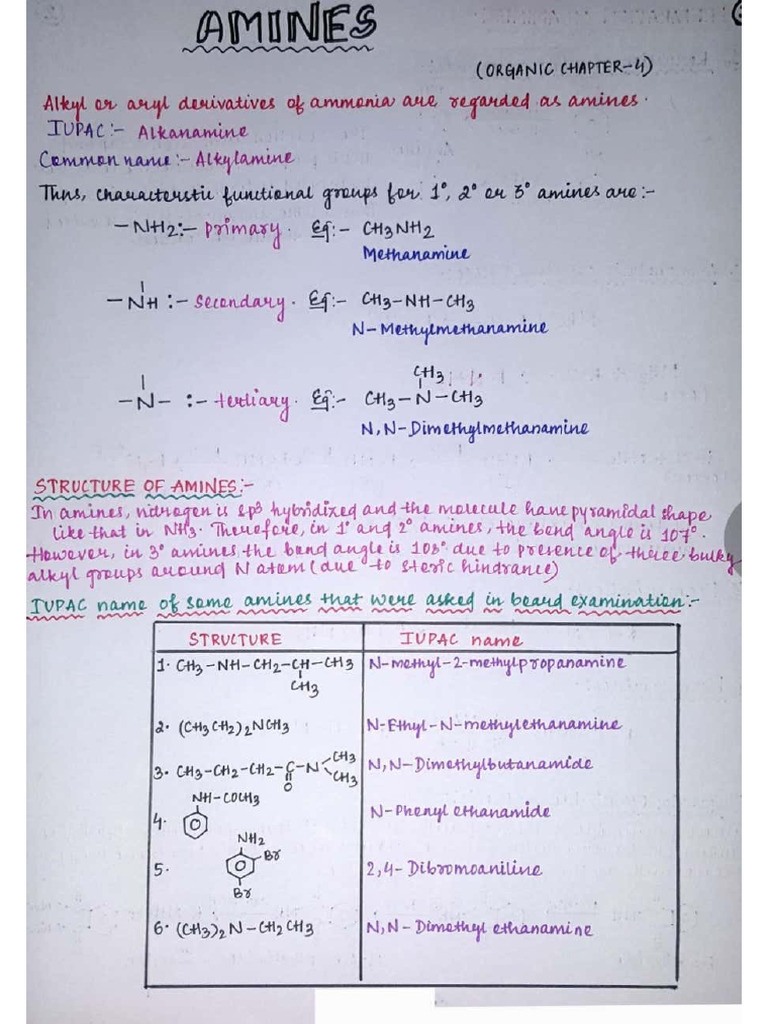 AMINES
(ORGANIC CHAPTER-4)
Alkyl or aryl derivatives of ammonia are regarded as amines.
IUPAC:- Alkanamine
Common name:- Alkylamine
Thus, characterstic functional groups for 1°, 2° or 3° amines are:-
-NH2:- primary. Eg:- CH3NH2
Methanamine
-NH:- secondary. Eg:- CH3-NH-CH3
N-Methylmethanamine
CH3
-N- :- tertiary. Eg:- CH3-N-CH3
N,N-Dimethylmethanamine
STRUCTURE OF AMINES:-
In amines, nitrogen is sp³ hybridized and the molecule have pyramidal shape
like that in NH3. Therefore, in 1° and 2° amines, the bond angle is 107°.
However, in 3° amines the bond angle is 108° due to presence of three bulky
alkyl groups around N atom (due to steric hindrance)
IUPAC name of some amines that were asked in board examination:-
STRUCTURE IUPAC name
1. CH3-NH-CH2-CH-CH3 N-methyl-2-methylpropanamine
CH3
2. (CH3CH2)2NCH3 N-Ethyl-N-methylethanamine
3. CH3-CH2-CH2-C-N CH3 N,N-Dimethylbutanamide
O CH3
NH-COCH3
4. N-Phenyl ethanamide
NH2
Br
5. 2,4-Dibromoaniline
Br
6. (CH3)2N-CH2CH3 N,N-Dimethyl ethanamine